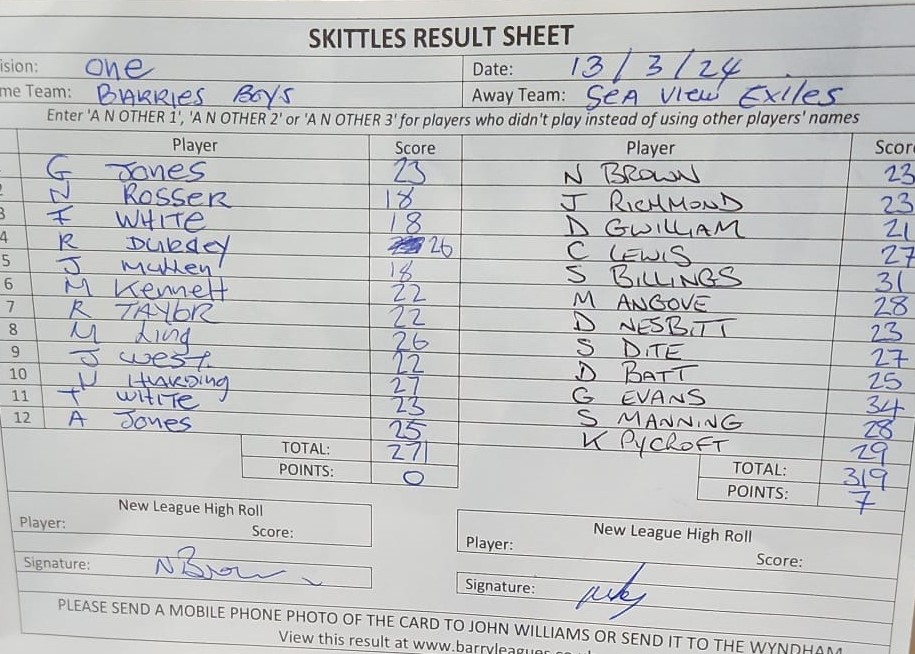 SKITTLES RESULT SHEET
ision: One Date: 13/3/24
me Team: BARRIES BOYS Away Team: SEA VIEW EXILES
Enter 'A N OTHER 1', 'A N OTHER 2' or 'A N OTHER 3' for players who didn't play instead of using other players' names
Player Score Player Scor
G Jones 23 N BROWN 23
2 N ROSSER 18 J RICHMOND 23
3 F WHITE 18 D GWILLIAM 21
4 R DURSEY 26 C LEWIS 27
5 J Mullen 18 S BILLINGS 31
6 M Kennett 22 M ANGOVE 28
7 R TAYLOR 22 D NESBITT 23
8 M Ling 26 S DITE 27
9 J West 22 D BATT 25
10 N HARDING 27 G EVANS 34
11 T WHITE 23 S MANNING 28
12 A Jones 25 K PYCROFT 29
TOTAL: 271 TOTAL: 319
POINTS: 0 POINTS: 7
New League High Roll New League High Roll
Player: Score: Player: Score:
Signature: N Brown Signature:
PLEASE SEND A MOBILE PHONE PHOTO OF THE CARD TO JOHN WILLIAMS OR SEND IT TO THE WYNDHAM
View this result at www.barryleagues.co